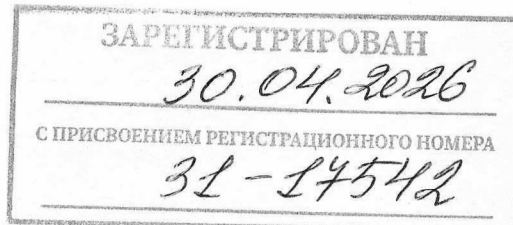 ЗАРЕГИСТРИРОВАН
30.04.2026
С ПРИСВОЕНИЕМ РЕГИСТРАЦИОННОГО НОМЕРА
31-17542